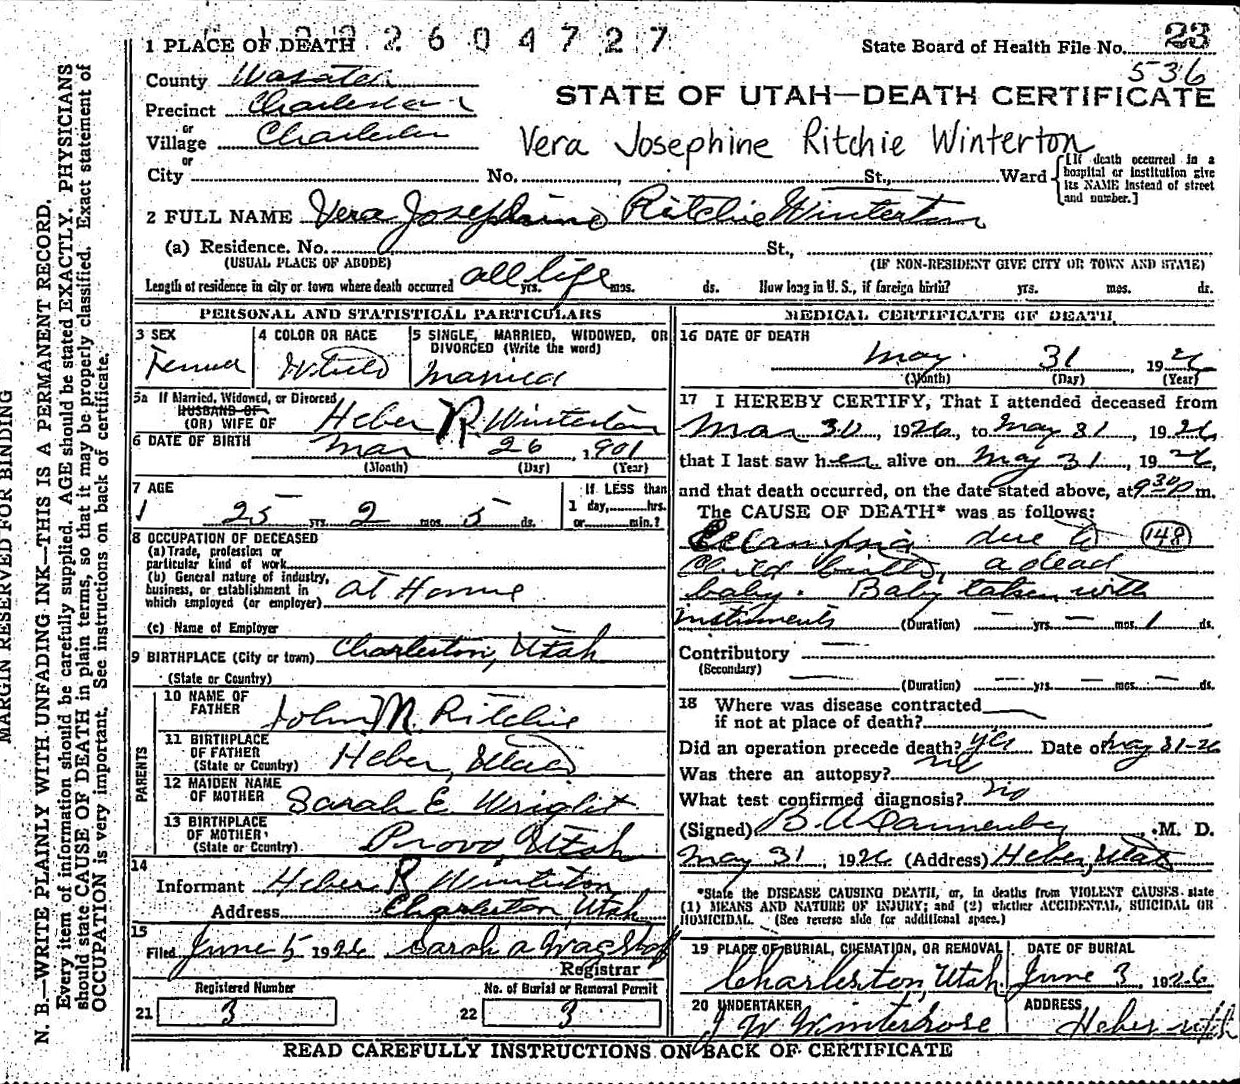 2604727
1 PLACE OF DEATH
State Board of Health File No. 23
536
County Wasatch
STATE OF UTAH—DEATH CERTIFICATE
Precinct Charleston
or
Village Charleston
Vera Josephine Ritchie Winterton
or
City No. St., Ward
[If death occurred in a hospital or institution give its NAME instead of street and number.]
2 FULL NAME Vera Josephine Ritchie Winterton
(a) Residence. No. St.,
(USUAL PLACE OF ABODE) (IF NON-RESIDENT GIVE CITY OR TOWN AND STATE)
Length of residence in city or town where death occurred all life yrs. mos. ds. How long in U. S., if foreign birth? yrs. mos. ds.
PERSONAL AND STATISTICAL PARTICULARS
3 SEX
4 COLOR OR RACE
5 SINGLE, MARRIED, WIDOWED, OR
DIVORCED (Write the word)
Married
5a If Married, Widowed, or Divorced
HUSBAND OF
(OR) WIFE OF Heber R. Winterton
6 DATE OF BIRTH Mar 26, 1901
(Month) (Day) (Year)
7 AGE
If LESS than
25 yrs. 2 mos. 5 ds.
1 day, hrs.
or min.?
8 OCCUPATION OF DECEASED
(a) Trade, profession or
particular kind of work
(b) General nature of industry,
business, or establishment in
which employed (or employer) at Home
(c) Name of Employer
9 BIRTHPLACE (City or town) Charleston, Utah
(State or Country)
PARENTS
10 NAME OF
FATHER John M. Ritchie
11 BIRTHPLACE
OF FATHER Heber, Utah
(State or Country)
12 MAIDEN NAME
OF MOTHER Sarah E Wright
13 BIRTHPLACE
OF MOTHER Provo, Utah
(State or Country)
14
Informant Heber R Winterton
Address Charleston, Utah
15
Filed June 5 1926 Sarah A Wagstaff
Registrar
Registered Number
21 3
No. of Burial or Removal Permit
22 3
MEDICAL CERTIFICATE OF DEATH
16 DATE OF DEATH
May 31 1926
(Month) (Day) (Year)
17 I HEREBY CERTIFY, That I attended deceased from
Mar 30, 1926, to May 31, 1926,
that I last saw her alive on May 31, 1926,
and that death occurred, on the date stated above, at 9 30 p m.
The CAUSE OF DEATH* was as follows:
Eclampsia due to 148
child birth, a dead
baby. Baby taken with
instruments (Duration) — yrs. — mos. 1 ds.
Contributory
(Secondary)
(Duration) — yrs. — mos. — ds.
18 Where was disease contracted
if not at place of death?
Did an operation precede death? yes Date of May 31-26
Was there an autopsy? no
What test confirmed diagnosis? no
(Signed) B. A. Dannenberg, M. D.
May 31, 1926 (Address) Heber, Utah
*State the DISEASE CAUSING DEATH, or, in deaths from VIOLENT CAUSES, state
(1) MEANS AND NATURE OF INJURY; and (2) whether ACCIDENTAL, SUICIDAL OR
HOMICIDAL. (See reverse side for additional space.)
19 PLACE OF BURIAL, CREMATION, OR REMOVAL
Charleston, Utah
DATE OF BURIAL
June 3 1926
20 UNDERTAKER
J W Winterrose
ADDRESS
Heber Utah
READ CAREFULLY INSTRUCTIONS ON BACK OF CERTIFICATE
MARGIN RESERVED FOR BINDING
N. B.—WRITE PLAINLY WITH UNFADING INK—THIS IS A PERMANENT RECORD.
Every item of information should be carefully supplied. AGE should be stated EXACTLY. PHYSICIANS
should state CAUSE OF DEATH in plain terms, so that it may be properly classified. Exact statement of
OCCUPATION is very important. See instructions on back of certificate.